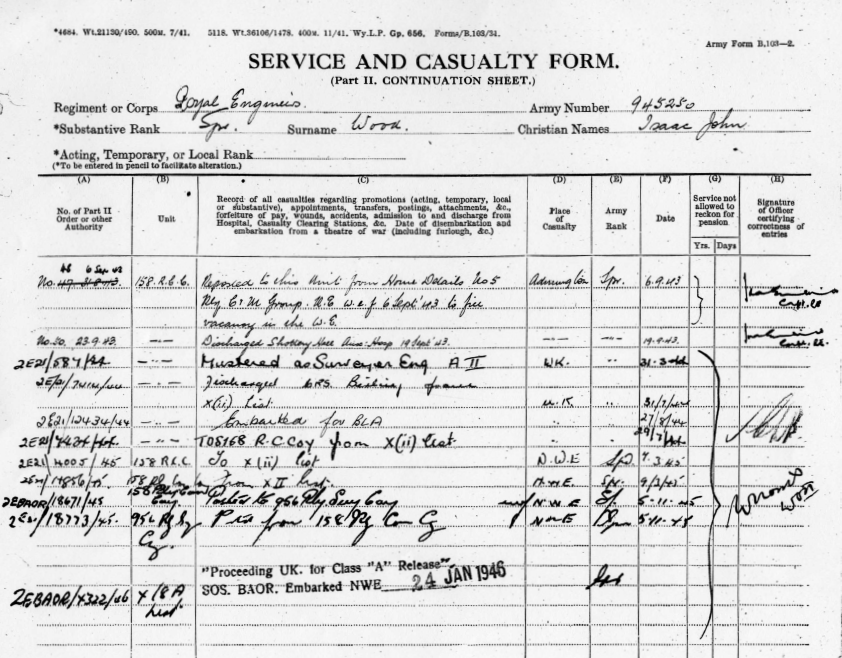 *4684. Wt.21130/490. 500M. 7/41. 5118. Wt.36106/1478. 400M. 11/41. Wy.L.P. Gp. 656. Forms/B.103/34.
Army Form B.103—2.
SERVICE AND CASUALTY FORM.
(Part II. CONTINUATION SHEET.)
Regiment or Corps Royal Engineers. Army Number 945250
*Substantive Rank Spr. Surname Wood. Christian Names Isaac John
*Acting, Temporary, or Local Rank
(*To be entered in pencil to facilitate alteration.)
(A) (B) (C) (D) (E) (F) (G) (H)
No. of Part II Order or other Authority
Unit
Record of all casualties regarding promotions (acting, temporary, local or substantive), appointments, transfers, postings, attachments, &c., forfeiture of pay, wounds, accidents, admission to and discharge from Hospital, Casualty Clearing Stations, &c. Date of disembarkation and embarkation from a theatre of war (including furlough, &c.)
Place of Casualty
Army Rank
Date
Service not allowed to reckon for pension
Yrs. Days
Signature of Officer certifying correctness of entries
48 6 Sep 43
No. 158.R.C.C. Reported to this Unit from Home Details No 5 Spr. 6.9.43
Rly C & M Group. R.E w.e.f 6 Sept '43 to fill
vacancy in the W.E. Capt. RE
No.50. 23.9.43. —"— Discharged Shottery Hall Aux: Hosp 19 Sept '43. —"— 19.9.43. Capt. RE.
2E21/587/44 —"— Mustered as Surveyor Eng A II UK. " 31-3-44
—"— Discharged from
x(ii) List U.K. " 31/7/44
2E21/12434/44 —"— Embarked for BLA " " 27/8/44
—"— R.C Coy from X(ii) list " "
2E21/4005/45 158 R.C.C To x (ii) list N.W.E Spr 7.3.45
/45. from X II list. N.W.E. 9/3/45
2EBAOR/18671/45 Posted to 956 Rly Coy N W E 5-11-45
2E21/18773/45. 956 Rly from 158 Rly Con Cy N W E 5-11-45
Cy.
"Proceeding UK. for Class "A" Release".
SOS. BAOR. Embarked NWE 24 JAN 1946
2EBAOR/X322/46 X (8 A
list.